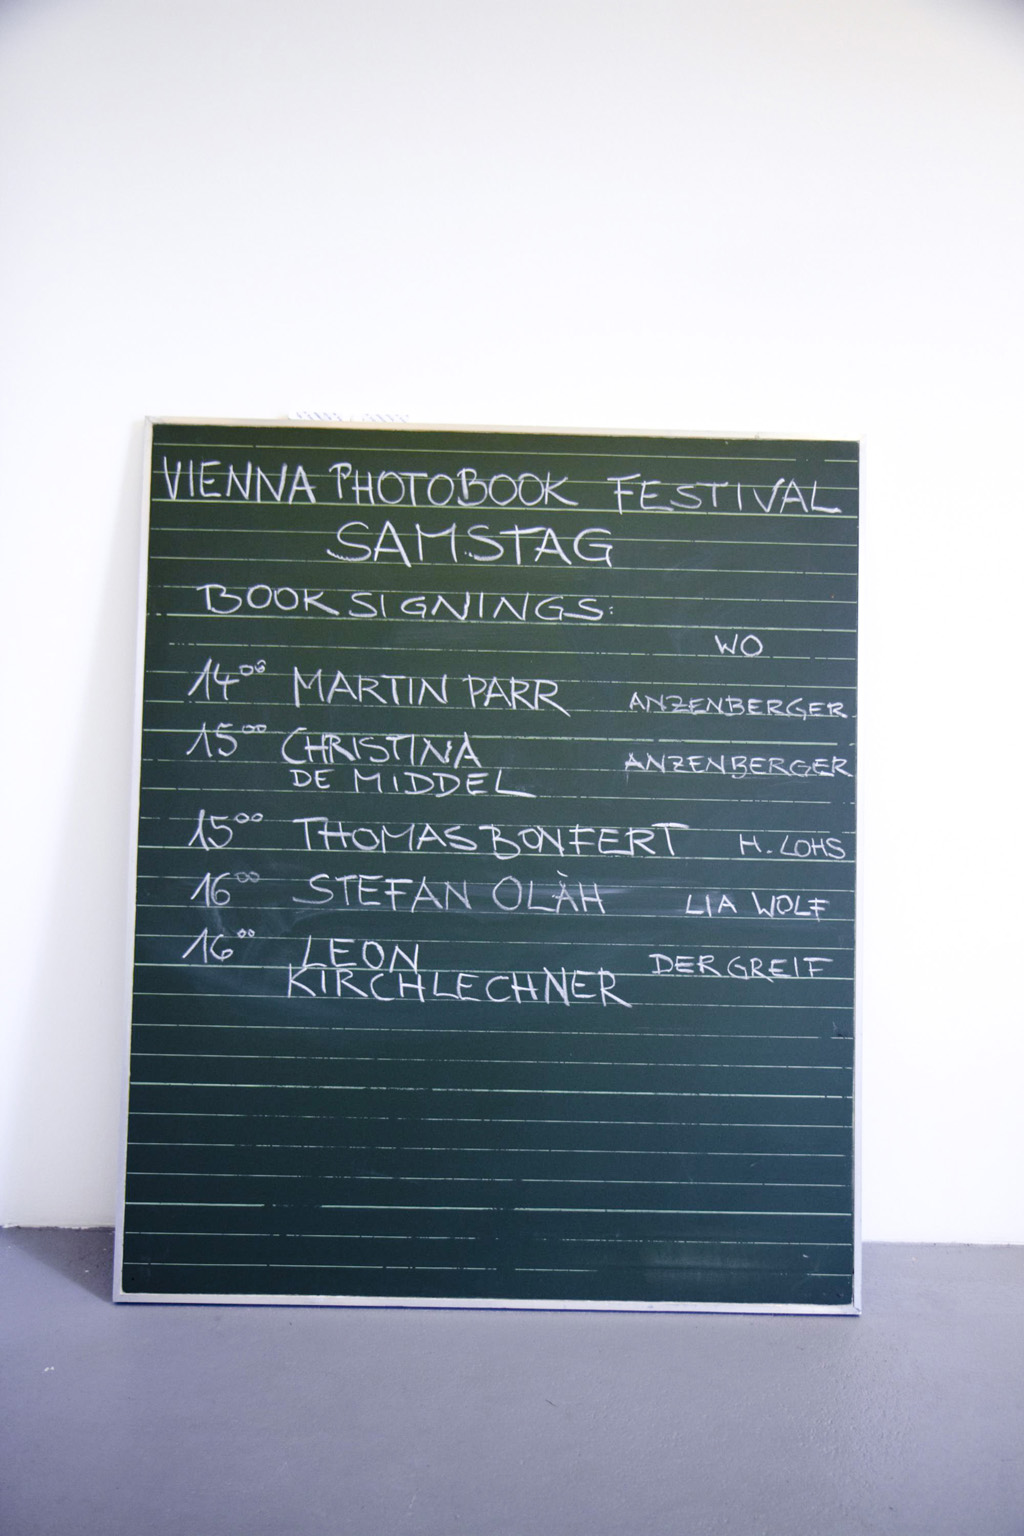 VIENNA PHOTOBOOK FESTIVAL
SAMSTAG
BOOK SIGNINGS:
WO
14⁰⁰ MARTIN PARR ANZENBERGER
15⁰⁰ CHRISTINA ANZENBERGER
DE MIDDEL
15⁰⁰ THOMAS BONFERT H. LOHS
16⁰⁰ STEFAN OLÀH LIA WOLF
16⁰⁰ LEON DER GREIF
KIRCHLECHNER